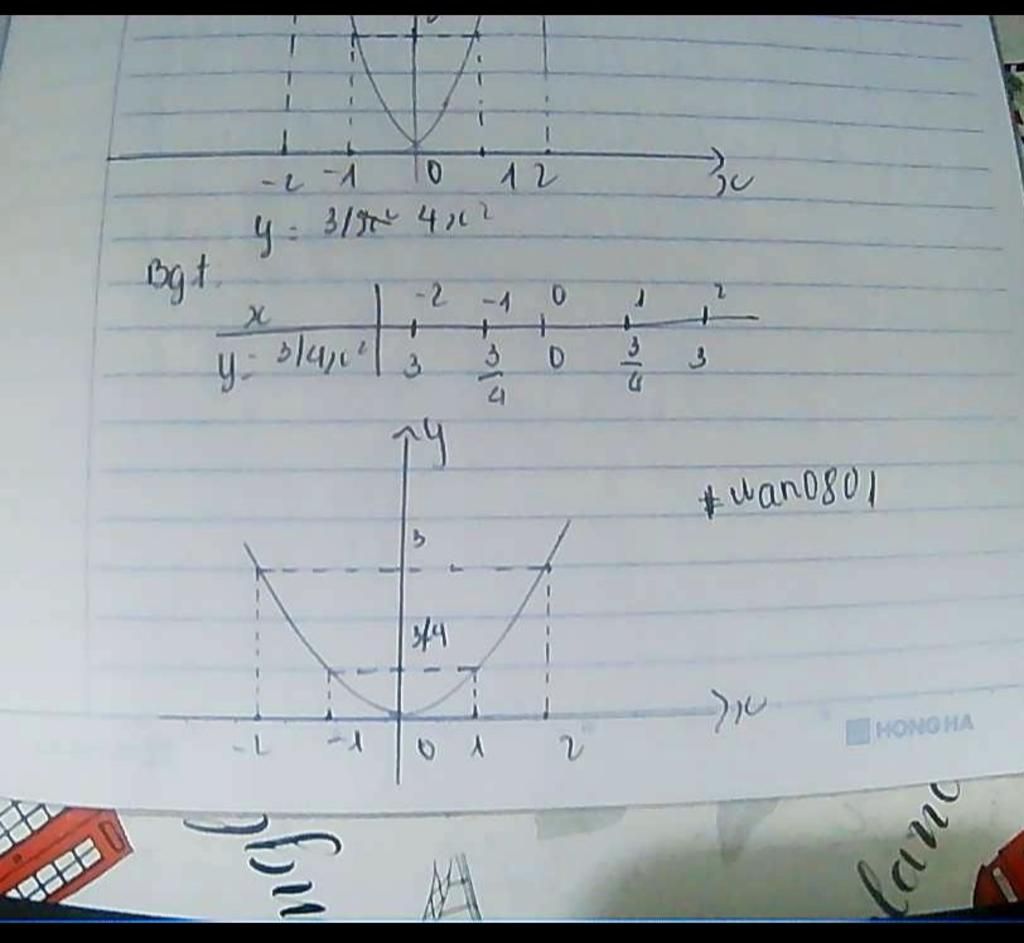 -2 -1 0 1 2 x
y = 4x²
Bgt.
x -2 -1 0 1 2
y = 3/4x² 3 3/4 0 3/4 3
y
#uan0801
3
3/4
x
-2 -1 0 1 2
HONG HA